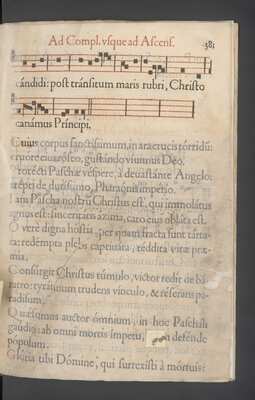 Ad Compl. vsque ad Ascens. 581
cándidi: post tránsitum maris rubri, Christo
canámus Príncipi.
Cuius corpus sanctíssimum, in ara crucis tórridū:
cruore eius róseo, gustándo viuimus Deo.
Protécti Paschæ véspere, à deuastánte Angelo:
erépti de duríssimo, Pharaónis império.
Iam Pascha nostrū Christus est, qui immolátus
agnus est: sinceritátis ázima, caro eius obláta est.
O verè digna hóstia, per quam fracta sunt tárta-
ra: redémpta plebs captiuáta, réddita vitæ præ-
mia.
Consúrgit Christus túmulo, victor redit de bá-
ratro: tyránnum trudens vínculo, & réserans pa-
radísum.
Quǽsumus auctor ómnium, in hoc Pascháli
gáudio: ab omni mortis ímpetu, defénde
pópulum.
Glória tibi Dómine, qui surrexísti à mórtuis: